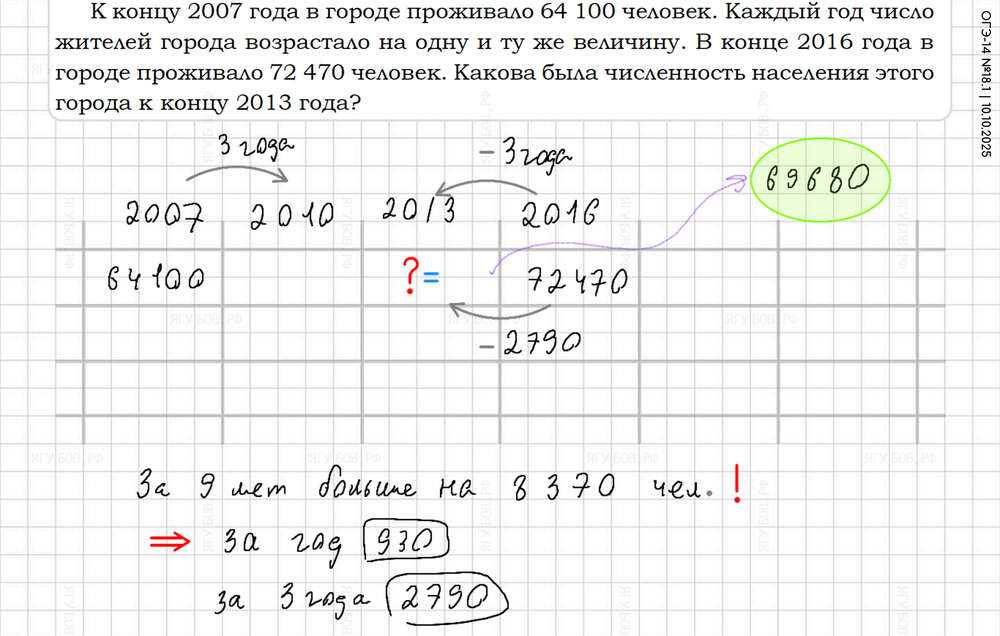 К концу 2007 года в городе проживало 64 100 человек. Каждый год число
жителей города возрастало на одну и ту же величину. В конце 2016 года в
городе проживало 72 470 человек. Какова была численность населения этого
города к концу 2013 года?
ОГЭ-14 №18.1 | 10.10.2025
3 года
– 3 года
69680
2007 2010 2013 2016
64100 ?= 72470
– 2790
За 9 лет больше на 8 370 чел. !
⇒ за год 930
за 3 года 2790
ЯГУБОВ.РФ